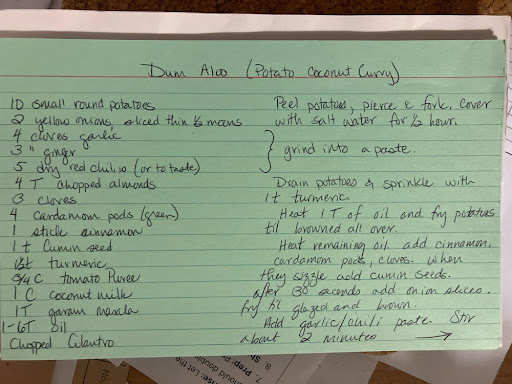 Dum Aloo (Potato Coconut Curry)
10 small round potatoes
2 yellow onions, sliced thin ½ moons
4 cloves garlic
3 " ginger
5 dry red chilis (or to taste)
4 T chopped almonds
3 cloves
4 cardamom pods (green)
1 stick cinnamon
1 t Cumin seed
1½t turmeric
3/4 C tomato Puree
1 C coconut milk
1T garam masala
1-6T oil
Chopped Cilantro
Peel potatoes, pierce & fork. Cover
with salt water for ½ hour.
grind into a paste.
Drain potatoes & sprinkle with
1 t turmeric.
Heat 1 T of oil and fry potatoes
til browned all over.
Heat remaining oil. add cinnamon,
cardamom pods, cloves. when
they sizzle add cumin seeds.
after 30 seconds add onion slices.
fry til glazed and brown.
Add garlic/chili paste. Stir
about 2 minutes →